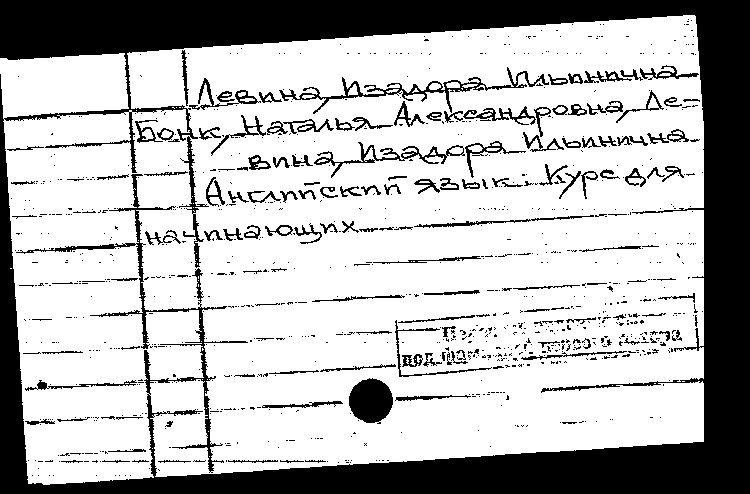 Левина, Изадора Ильинична
Бонк, Наталья Александровна, Ле-
вина, Изадора Ильинична
Английский язык: Курс для
начинающих
под фам первого автора